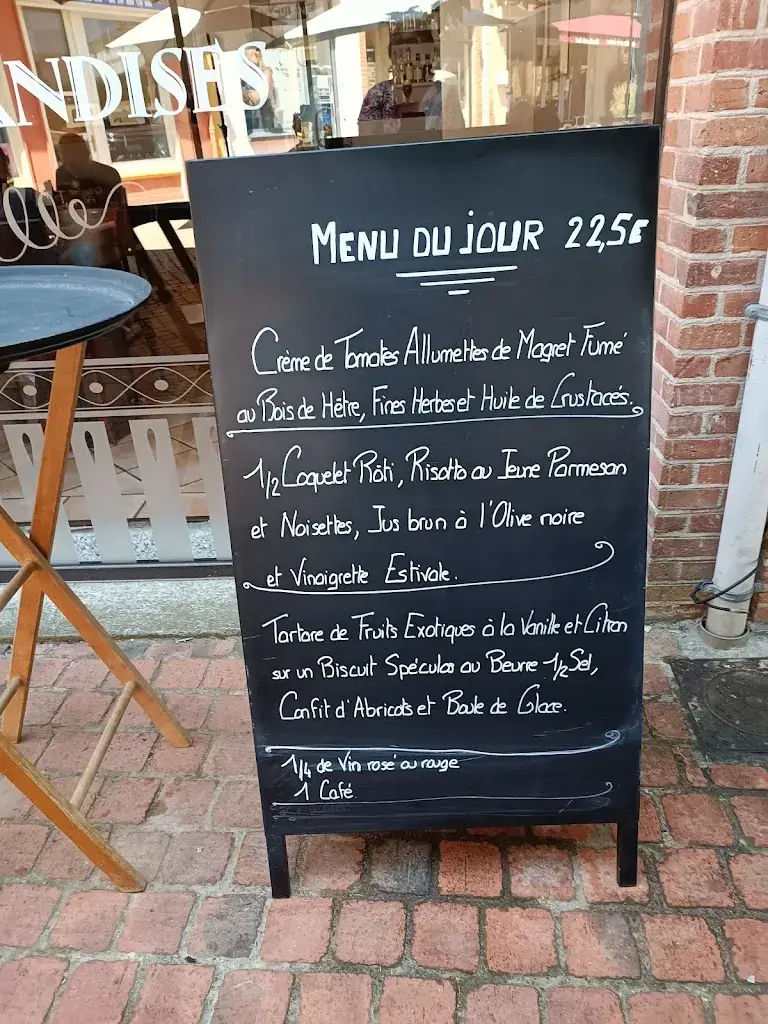 ANDISES
lle
MENU DU JOUR 22,5€
Crème de Tomates Allumettes de Magret Fumé
au Bois de Hêtre, Fines Herbes et Huile de Crustacés.
1/2 Coquelet Rôti, Risotto au Jeune Parmesan
et Noisettes, Jus brun à l'Olive noire
et Vinaigrette Estivale.
Tartare de Fruits Exotiques à la Vanille et Citron
sur un Biscuit Spéculos au Beurre 1/2 Sel,
Confit d'Abricots et Boule de Glace.
1/4 de Vin rosé ou rouge
1 Café